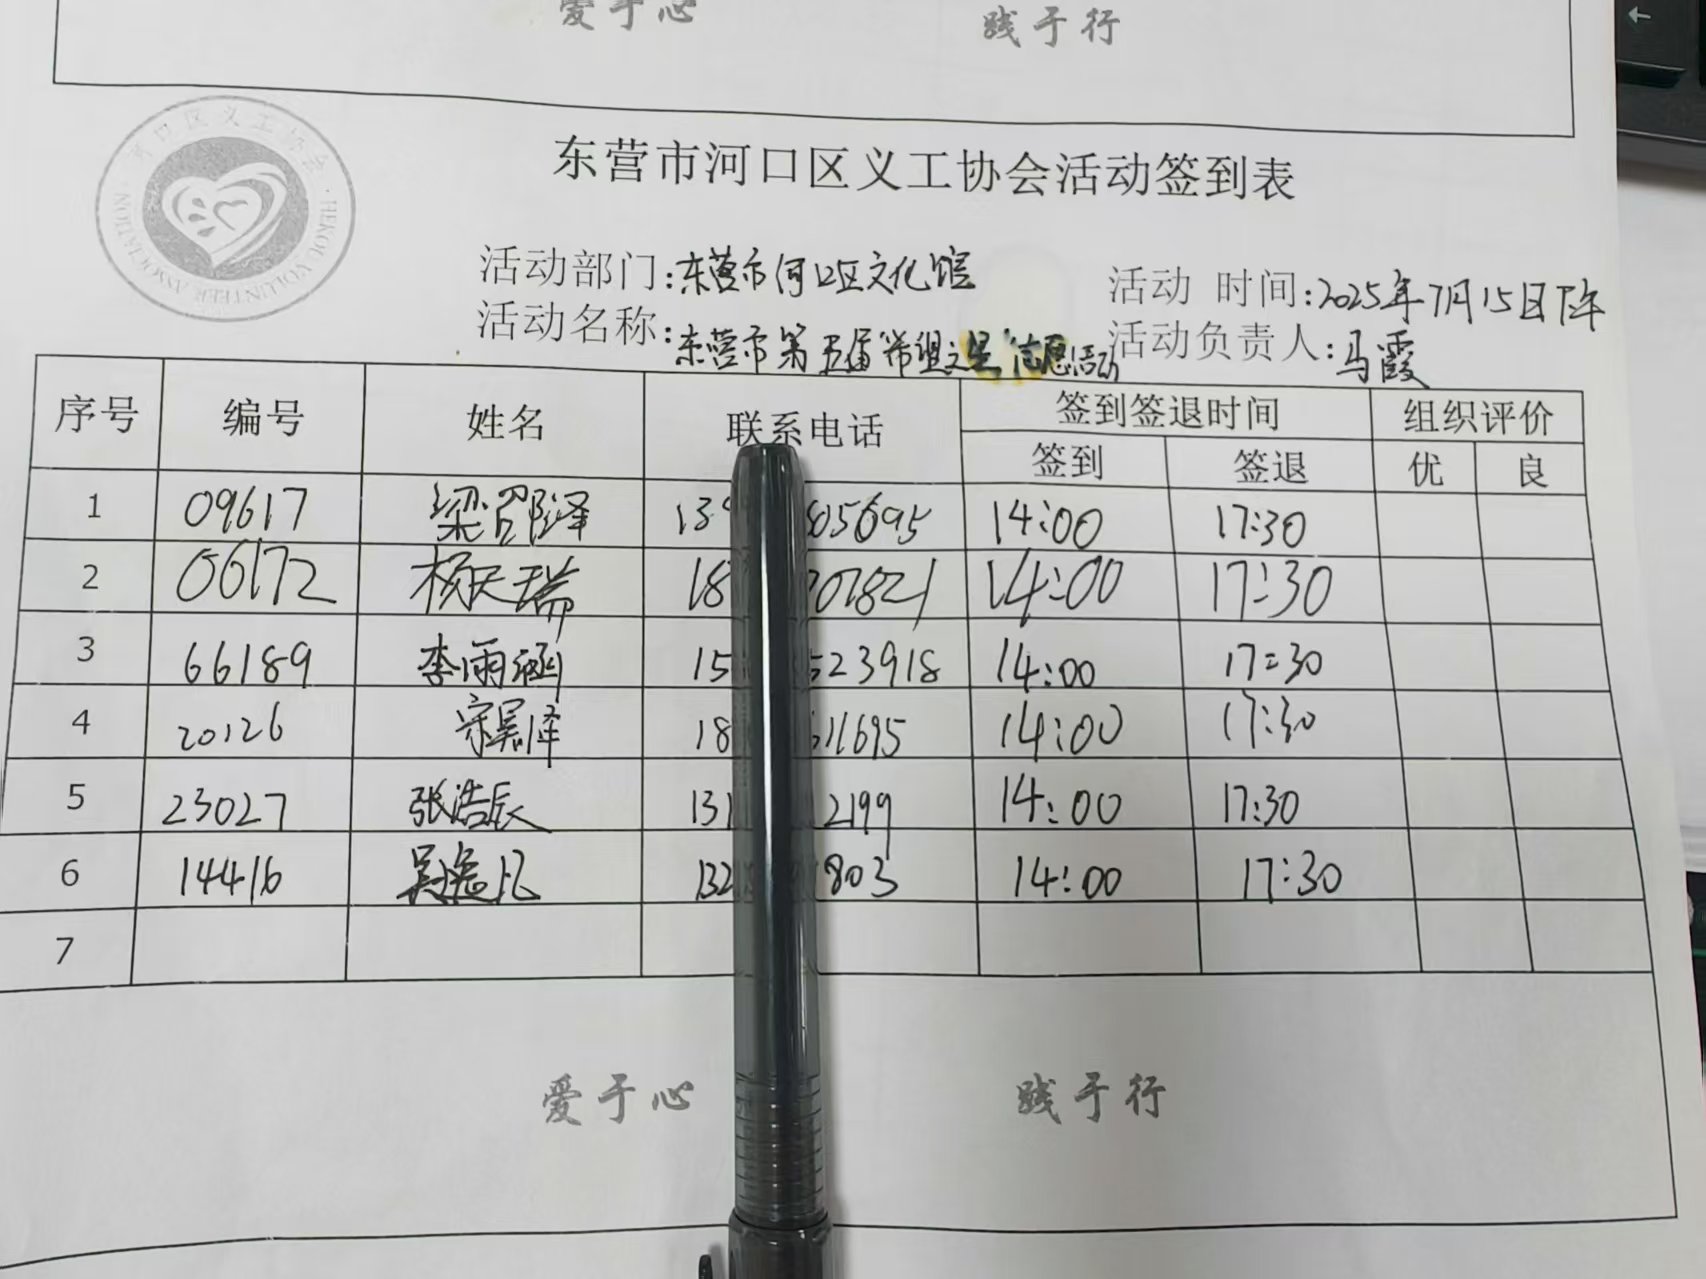 爱于心 践于行
河口区义工协会
HEKOU VOLUNTEER ASSOCIATION
东营市河口区义工协会活动签到表
活动部门:东营市河口区文化馆 活动 时间:2025年7月15日下午
活动名称:东营市第五届"希望之星"志愿活动 活动负责人:马霞
序号 编号 姓名 联系电话 签到签退时间 组织评价
签到 签退 优 良
1 09617 梁邵泽 13 05695 14:00 17:30
2 06172 杨天瑞 18 701821 14:00 17:30
3 66189 李雨涵 15 523918 14:00 17:30
4 20126 宋昊泽 18 511695 14:00 17:30
5 23027 张浩辰 131 2199 14:00 17:30
6 14416 吴逸凡 132 803 14:00 17:30
7
爱于心 践于行